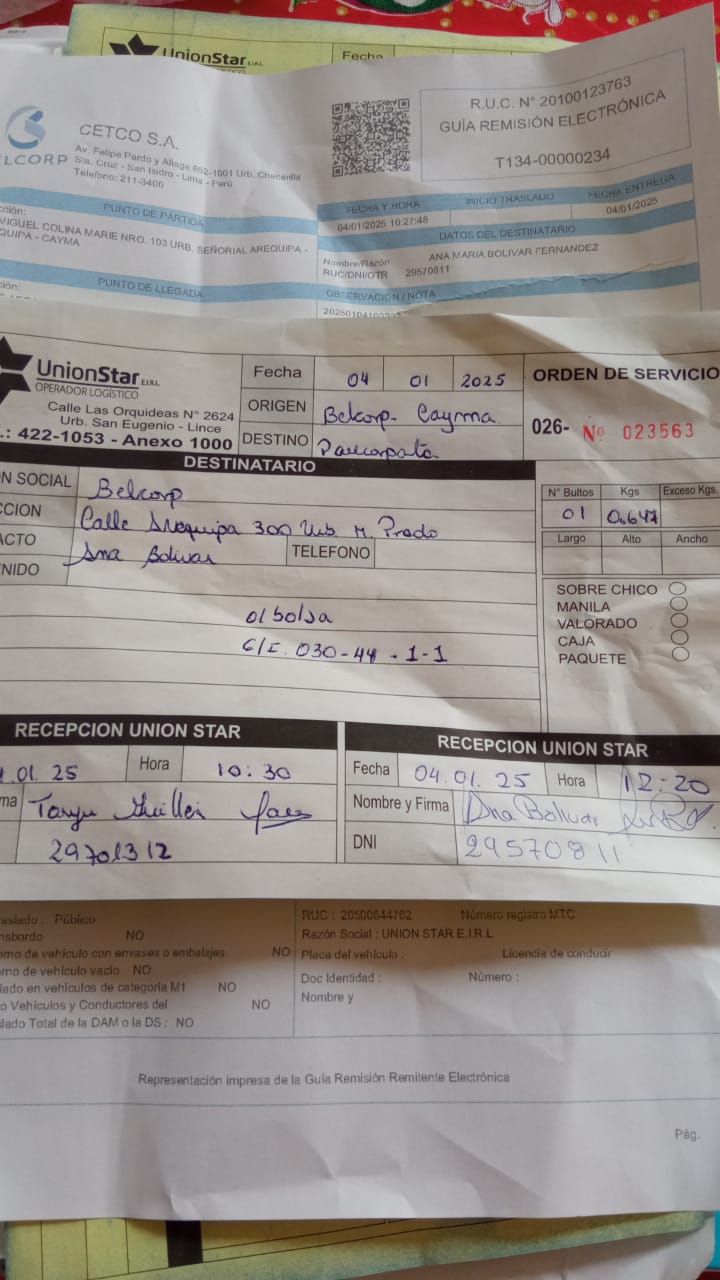 UnionStar E.I.R.L. Fecha
CETCO S.A.
ELCORP
Av. Felipe Pardo y Aliaga 652-1001 Urb. Chacarilla
Sta. Cruz - San Isidro - Lima - Perú
Telefono: 211-3400
R.U.C. N° 20100123763
GUÍA REMISIÓN ELECTRÓNICA
T134-00000234
PUNTO DE PARTIDA
cción:
MIGUEL COLINA MARIE NRO. 103 URB. SEÑORIAL AREQUIPA -
QUIPA - CAYMA
FECHA Y HORA INICIO TRASLADO FECHA ENTREGA
04/01/2025 10:27:48 04/01/2025
DATOS DEL DESTINATARIO
Nombre/Razón ANA MARIA BOLIVAR FERNANDEZ
RUC/DNI/OTR 29570811
PUNTO DE LLEGADA
ción:
OBSERVACIÓN / NOTA
UnionStar E.I.R.L.
OPERADOR LOGÍSTICO
Calle Las Orquideas N° 2624
Urb. San Eugenio - Lince
.: 422-1053 - Anexo 1000
Fecha 04 01 2025
ORIGEN Belcorp - Cayma
DESTINO Paucarpata
ORDEN DE SERVICIO
026- Nº 023563
DESTINATARIO
N SOCIAL Belcorp
CCION Calle Arequipa 300 Urb. M. Prado
ACTO Ana Bolivar TELEFONO
NIDO
01 bolsa
C/I. 030-44-1-1
N° Bultos Kgs Exceso Kgs.
01 0.647
Largo Alto Ancho
SOBRE CHICO
MANILA
VALORADO
CAJA
PAQUETE
RECEPCION UNION STAR
.01.25 Hora 10:30
ma
29701312
RECEPCION UNION STAR
Fecha 04.01.25 Hora 12:20
Nombre y Firma Ana Bolivar
DNI 29570811
aslado : Público
nsbordo NO
orno de vehículo con envases o embalajes NO
orno de vehículo vacio NO
lado en vehículos de categoría M1 NO
o Vehículos y Conductores del NO
lado Total de la DAM o la DS : NO
RUC : 20500644762 Número registro MTC
Razón Social : UNION STAR E.I.R.L
Placa del vehículo : Licencia de conducir
Doc Identidad : Número :
Nombre y
Representación impresa de la Guía Remisión Remitente Electrónica
Pág.